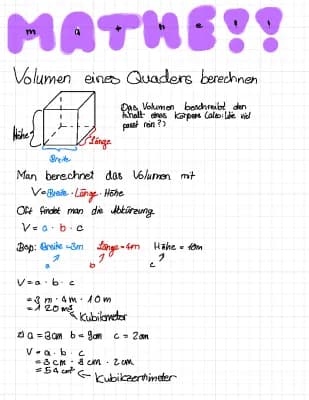 MATHE!!
m a t h e ! !
Volumen eines Quaders berechnen
Das Volumen beschreibt den
Inhalt eines Körpers (also: Wie viel
passt rein?)
Höhe
Länge
Breite
Man berechnet das Volumen mit
V=Breite · Länge · Höhe
Oft findet man die Abkürzung
V= a · b · c
Bsp: Breite=3m Länge=4m Höhe = 10m
a b c
V=a · b · c
=3 m · 4m · 10m
=120m³
Kubikmeter
2) a=3cm b=9cm c=2cm
V=a · b · c
=3cm · 9cm · 2cm
=54cm³
Kubikzentimeter